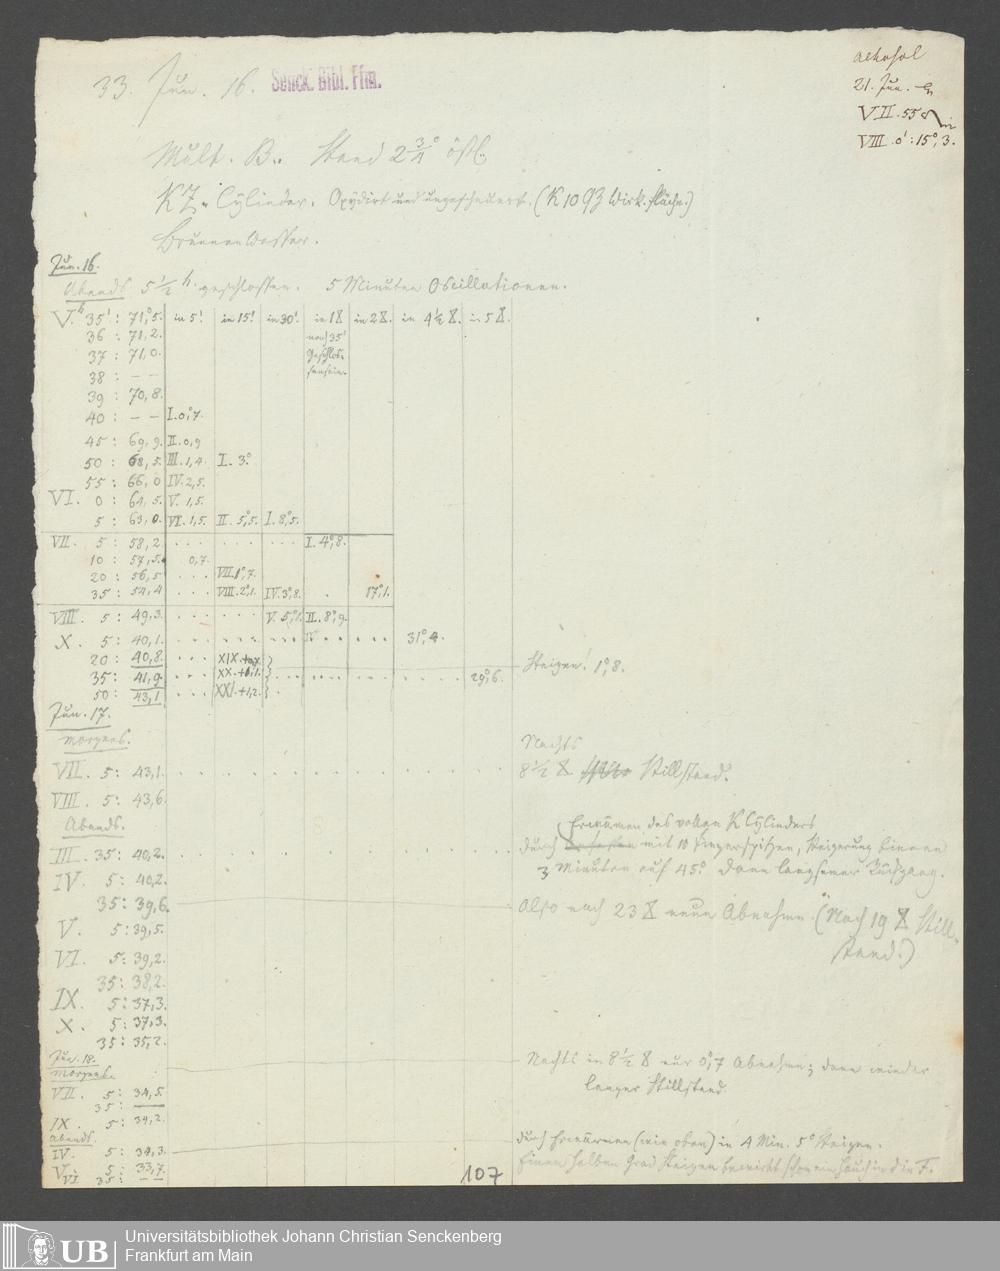 33. Jun. 16.
Senck. Bibl. Ffm.
Alkohol
21. Jun.
VII. 55
VIII. 0' : 15°,3.
Mult. B.. Stand 2 3/4° östl.
KZ. Cylinder. Oxydirt und ungescheuert. (K 10 QZ Wirk. fläche.)
Brunnenwasser.
Jun. 16.
Abends 5 1/2 h. geschlossen. 5 Minuten Oscillationen.
V.h 35' : 71,°5. in 5' in 15! in 30! in 1 X in 2 X. in 4 1/2 X. in 5 X.
36 : 71,2. nach 35'
37 : 71,0. Geschlos-
38 : — — sensein.
39 : 70,8.
40 : — — I. 0,°7.
45 : 69,9. II. 0,9
50 : 68,5. III. 1,4. I. 3°.
55 : 66,0 IV. 2,5.
VI. 0 : 64,5. V. 1,5.
5 : 63,0. VI. 1,5. II. 5,°5. I. 8,°5.
VII. 5 : 58,2. . . . . . . . . . I. 4,°8.
10 : 57,5. 0,7.
20 : 56,5 . . . VII. 1°,7.
35 : 54,4 . . . VIII. 2°,1. IV. 3°,8. . 17°,1.
VIII. 5 : 49,3. . . . . . . V. 5,°1. II. 8°,9.
X. 5 : 40,1. . . . . . . . . . IV . . . . . 31°,4.
20 : 40,8. . . . XIX.
35 : 41,9. . . . XX. +1,1. } . . . . . . . . . . 29°,6. Steigen! 1°,8.
50 : 43,1 . . . XXI. +1,2. } .
Jun. 17.
Morgens. Nachts
VII. 5 : 43,1. . . . . . . . . . . . . . 8 1/2 X Stillstand.
VIII. 5 : 43,6.
Abends. Erwärmen des vollen K Cylinders
III. 35 : 40,2. . . . . . . . . . . . . durch mit 10 Fingerspitzen, Steigerung binnen
IV. 5 : 40,2. 3 Minuten auf 45°. Dann langsamer Rückgang.
35 : 39,6. Also nach 23 X neun Abnahme. (Nach 19 X Still-
V. 5 : 39,5. stand.)
VI. 5 : 39,2.
35 : 38,2.
IX. 5 : 37,3.
X. 5 : 37,3.
35 : 35,2.
Jun. 18. Nachts in 8 1/2 X nur 0°,7 Abnahme; dann wieder
Morgens. langer Stillstand.
VII. 5 : 34,5.
35 : ——
IX. 5 : 34,2.
Abends. durch Erwärmen (wie oben) in 4 Min. 5° Steigen.
IV. 5 : 34,3. Einen halben Grad Steigen bewirkt schon ein Hauch in die F.
V. 5 : 33,7.
VI 35 : — —
107
UB
Universitätsbibliothek Johann Christian Senckenberg
Frankfurt am Main